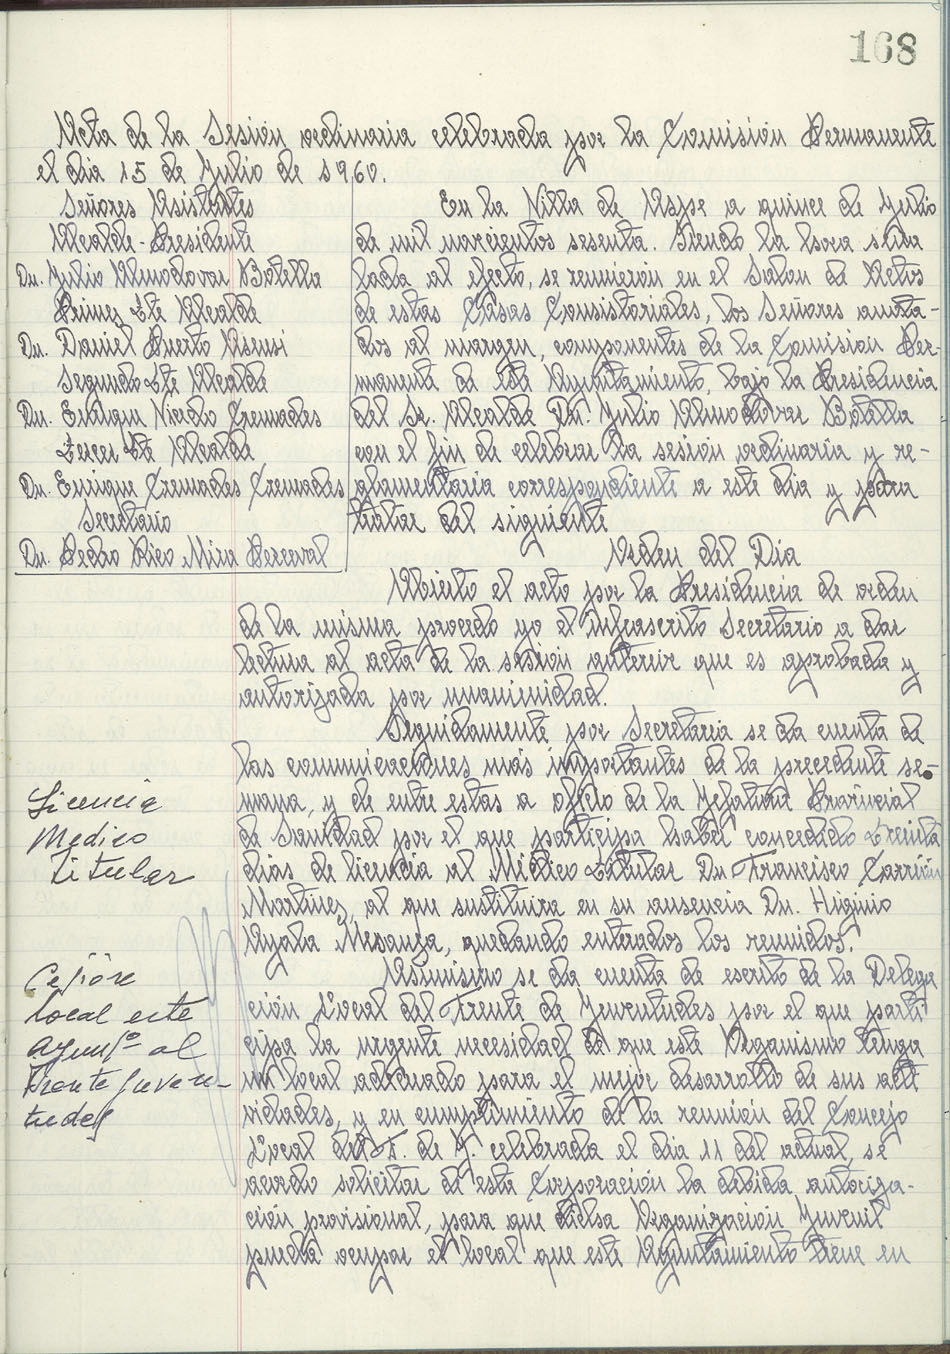 168
Acta de la Sesión ordinaria celebrada por la Comisión Permanente
el dia 15 de Julio de 1960.
Señores Asistentes
Alcalde-Presidente
Dn. Julio Almodovar Botella
Primer Lte Alcalde
Dn. Daniel Puerto Asensi
Segundo Lte Alcalde
Dn. Enrique Niedo Cremades
Tercer Lte Alcalde
Dn. Enrique Cremades Cremades
Secretario
Dn. Pedro Rico Mira Perceval
En la Villa de Aspe a quince de Julio
de mil novecientos sesenta. Siendo la hora seña
lada al efecto, se reunieron en el Salon de Actos
de estas Casas Consistoriales, los Señores anota-
dos al margen, componentes de la Comision Per-
manente de este Ayuntamiento, bajo la Presidencia
del Sr. Alcalde Dn. Julio Almodovar Botella
con el fin de celebrar la sesión ordinaria y re-
glamentaria correspondiente a este dia y para
tratar del siguiente
Orden del Dia
Abierto el acto por la Presidencia de orden
de la misma procedo yo el infrascrito Secretario a dar
lectura al acta de la sesión anterior que es aprobada y
autorizada por unanimidad.
Seguidamente por Secretaria se da cuenta de
las comunicaciones más importantes de la precedente se-
mana, y de entre estas a oficio de la Jefatura Provincial
de Sanidad por el que participa haber concedido treinta
dias de licencia al Médico Titular Dn. Francisco Carrión
Martinez, al que sustituira en su ausencia Dn. Higinio
Ayala Mesanza, quedando enterados los reunidos.
Licencia
Medico
Titular
Asimismo se da cuenta de escrito de la Delega
ción Local del Frente de Juventudes por el que parti
cipa la urgente necesidad de que este Organismo tenga
un local adecuado para el mejor desarrollo de sus acti
vidades, y en cumplimiento de la reunión del Concejo
Local del F. de J. celebrada el dia 11 del actual, se
acordo solicitar de esta Corporación la debida autoriza-
ción provisional, para que dicha Organización Juvenil
pueda ocupar el local que este Ayuntamiento tiene en
local este
Ayunto al
Frente Juven-
tudes